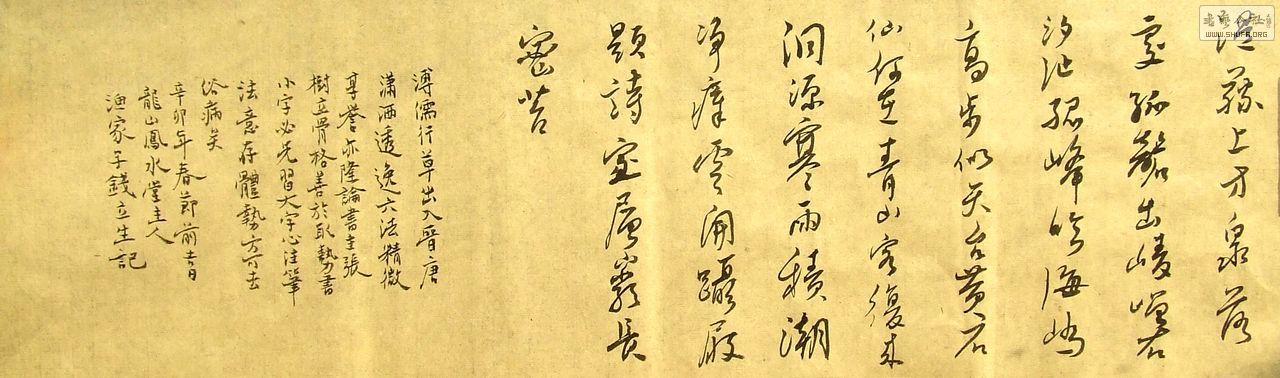 藤上方泉落
处孤磬出崚嶒石
汐池孤峰吟海峤
高步似天台黄石
仙何在青山客復来
洞源寒雨積潮
净瘴雲開躡屐
題詩室層巖長
密苔
溥儒行草出入晉唐
瀟洒透逸六法精微
享誉亦隆論書主張
樹立骨格善於取勢書
小字必先習大字心注筆
法意存體勢方可去
俗病矣
辛卯年春節前
龍山鳳水堂主人
漁家子錢立生記
書法
WWW.SHUFA.ORG